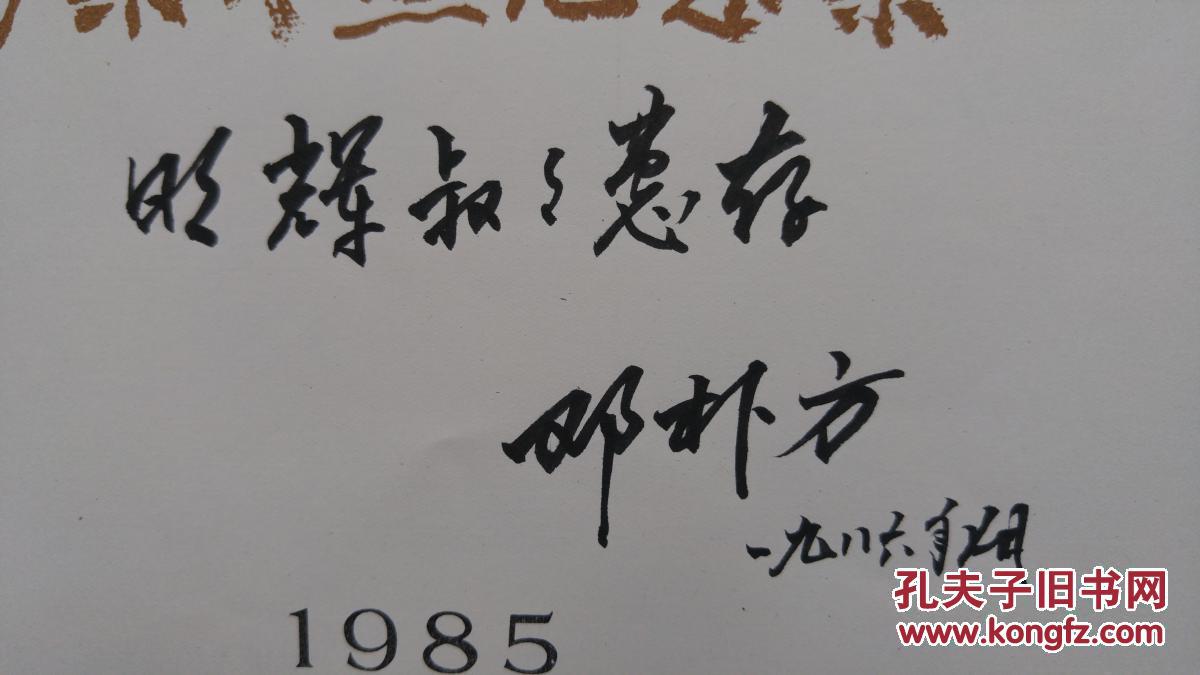 明辉叔々惠存
邓朴方
一九八六年七月
1985
孔夫子旧书网
www.kongfz.com